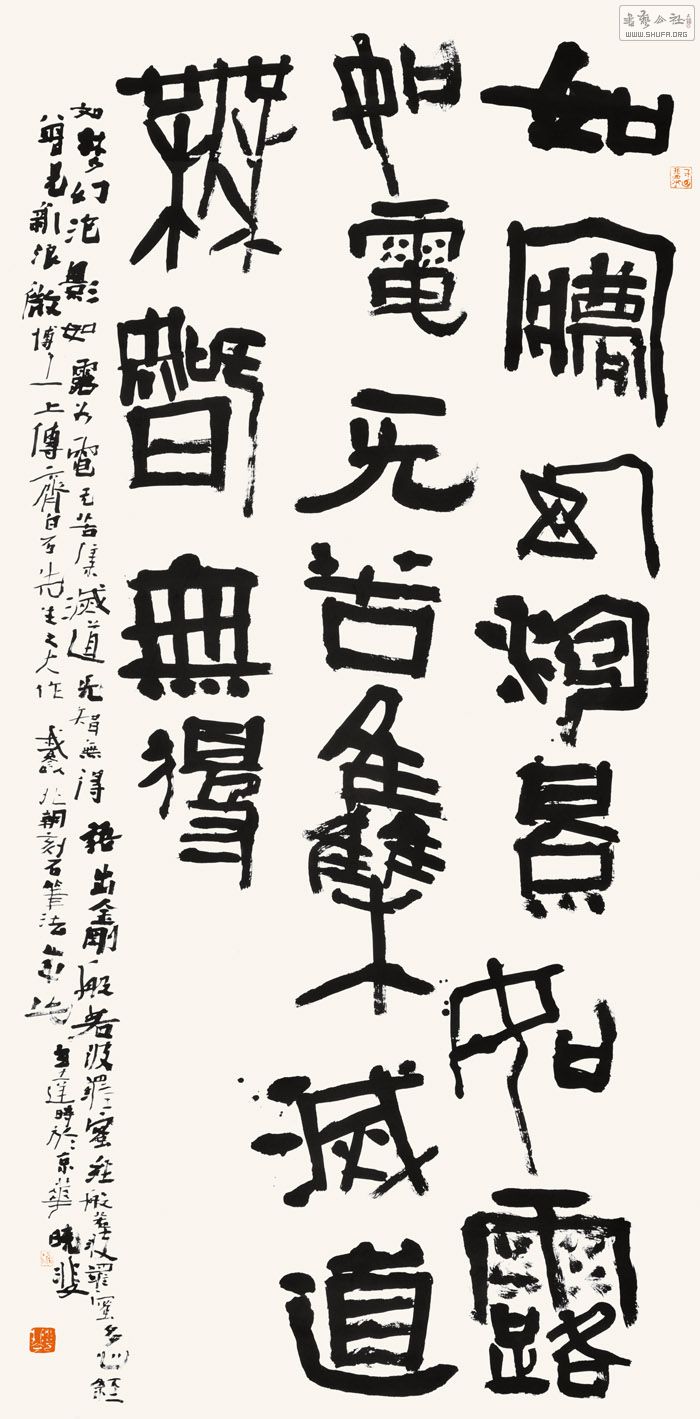 如夢幻泡景如露
如電无苦集滅道
無智無得
如梦幻泡影如露如電无苦集滅道无智無得 語出金剛般若波羅蜜經般若波羅蜜多心經
曾見新浪微博上傳齊白石先生之大作 北朝刻石筆法 時於京華 曉斐
書法公社
WWW.SHUFA.ORG